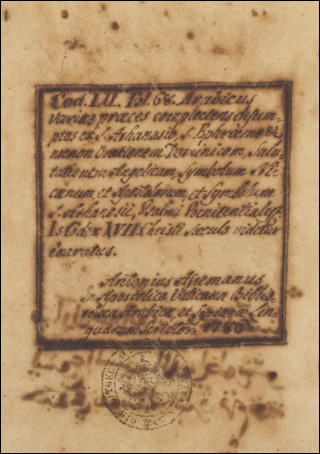 Cod. LII. Fol. 68. Arabicus
varias præces complectens desum-
ptas ex S. Athanasio, S. Ephræmo
necnon Orationem Dominicam, Salu-
tationem Angelicam Symbolum Ni-
cænum et Apostolorum, et Symbolum
S. Athanasii, Psalmi Poenitentiales
Is Codex XVII. Christi Sæculo videtur
exaratus.
Antonius Assemanus
In Apostolica Vaticana Biblio-
theca Arabicæ et Syriacæ Lin-
guarum Scriptor